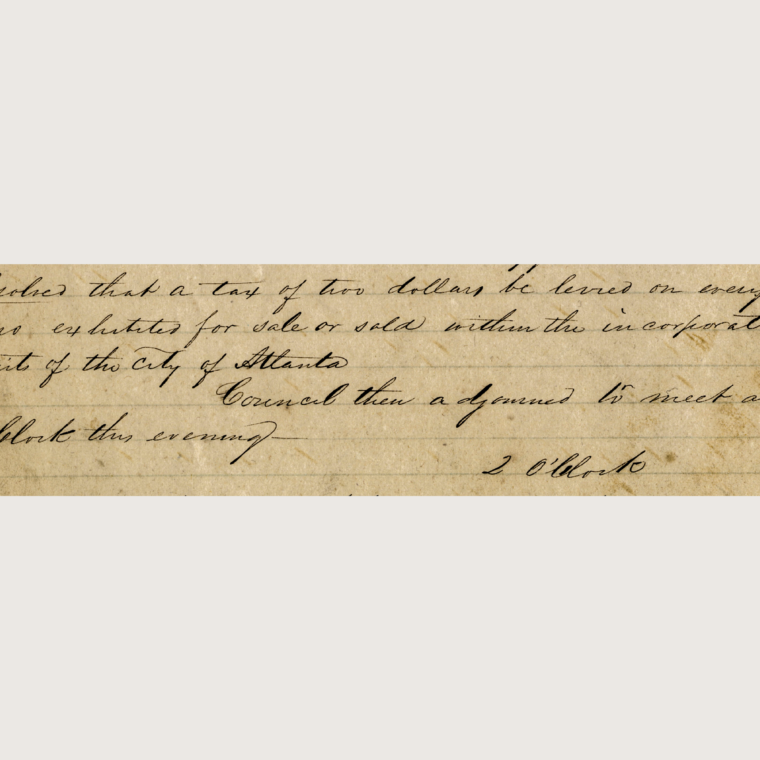 solved that a tax of two dollars be levied on every
exhibited for sale or sold within the incorporat
its of the city of Atlanta
Council then adjourned to meet a
Clock this evening—
2 O'Clock